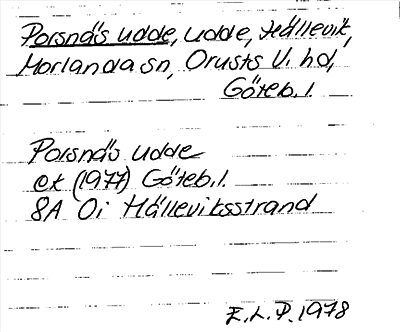 Porsnäs udde, udde, Hällevik,
Morlanda sn, Orusts V. hd,
Göteb. l.
Porsnäs udde
ek (1977) Göteb. l.
8A Oi Hälleviksstrand
E.L.P. 1978